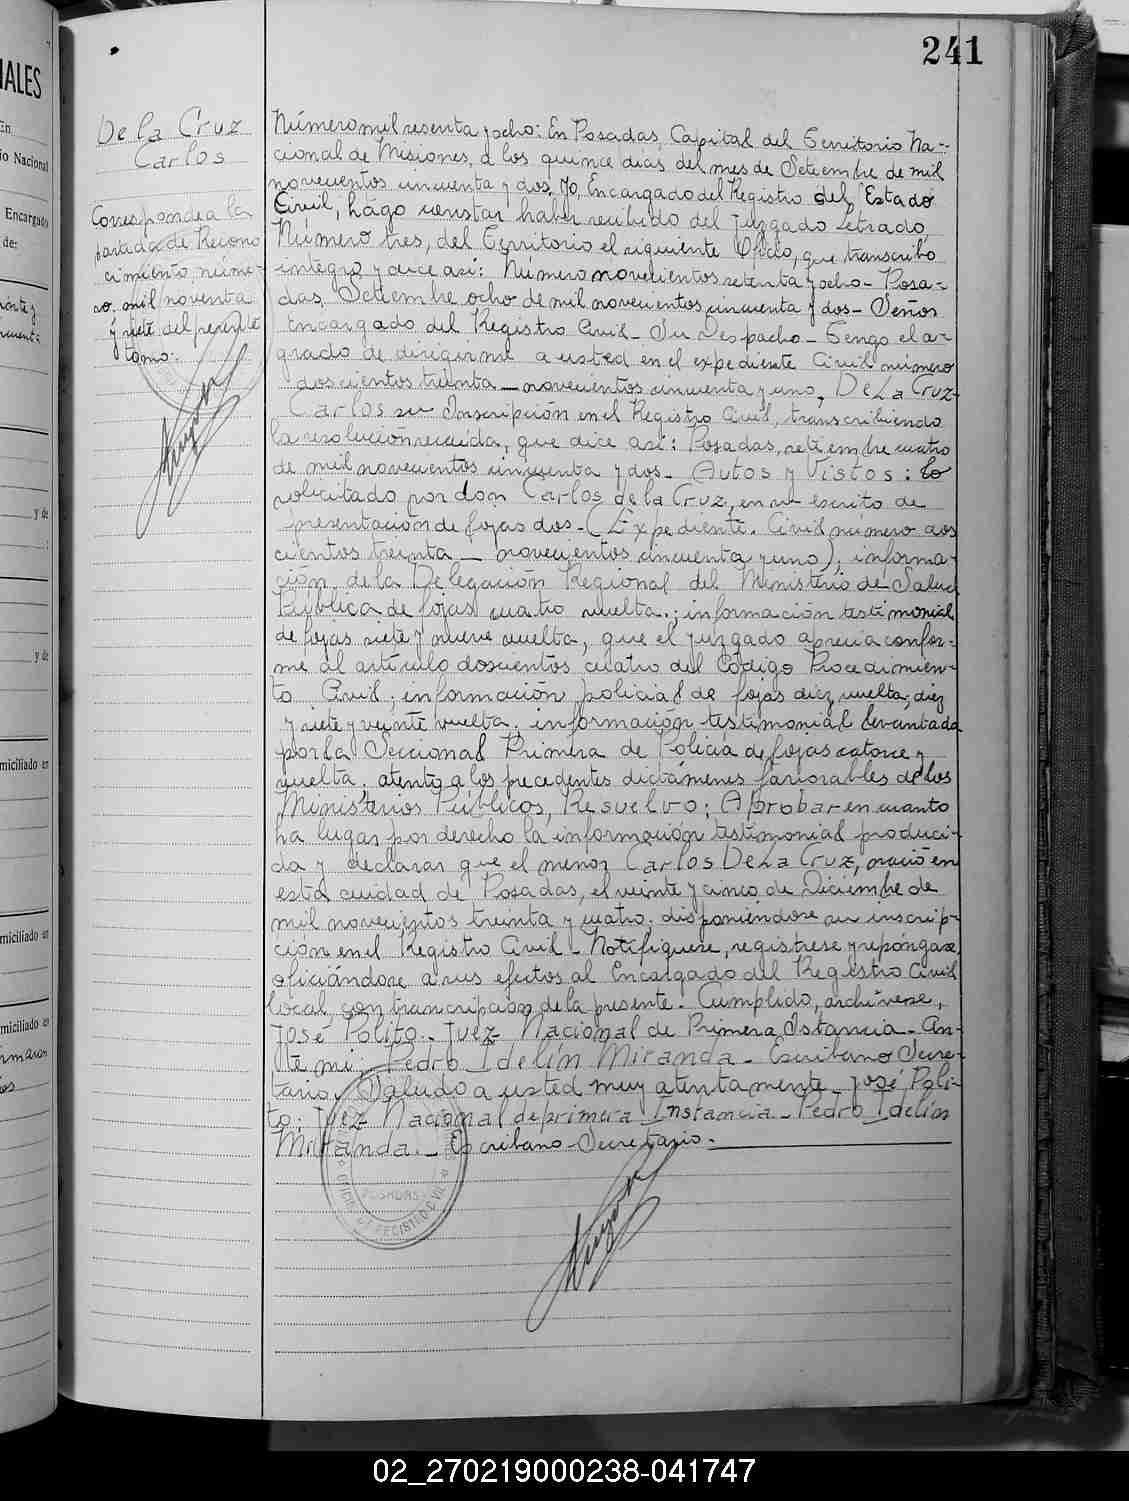 241
IALES
De la Cruz
Carlos
Corresponde a la
partida de Recono
cimiento núme-
ro, mil noventa
y siete del presente
tomo.
Número mil sesenta y ocho: En Posadas, Capital del Territorio Na-
cional de Misiones, a los quince dias del mes de Setiembre de mil
novecientos cincuenta y dos, yo, Encargado del Registro del Estado
Civil, hágo constar haber recibido del Juzgado Letrado,
Número tres, del Territorio el siguiente Oficio, que transcribo
integro y dice así: Número novecientos setenta y ocho- Posa-
das, Setiembre ocho de mil novecientos cincuenta y dos- Señor
Encargado del Registro Civil- Su Despacho- Tengo el a-
grado de dirigirme a usted en el expediente Civil número
doscientos treinta - novecientos cincuenta y uno, De La Cruz-
Carlos su Inscripción en el Registro Civil, transcribiendo
la resolución recaída, que dice asi: Posadas, setiembre cuatro
de mil novecientos cincuenta y dos- Autos y Vistos: lo
solicitado por don Carlos de la Cruz, en su escrito de
presentación de fojas dos- (Expediente. Civil número dos
cientos treinta - novecientos cincuenta y uno), informa-
ción de la Delegación Regional del Ministerio de Salud
Pública de fojas cuatro vuelta.; información testimonial
de fojas siete y nueve vuelta, que el juzgado aprecia confor-
me al artículo doscientos cuatro del Código Procedimien-
to Civil; información policial de fojas diez vuelta; diez
y siete y veinte vuelta. información testimonial levantada
por la Seccional Primera de Policía de fojas catorce y
vuelta, atento a los precedentes dictámenes favorables de los
Ministerios Públicos, Resuelvo: Aprobar en cuanto
ha lugar por derecho la información testimonial produci-
da y declarar que el menor Carlos De La Cruz, nació en
esta cuidad de Posadas, el veinte y cinco de Diciembre de
mil novecientos treinta y cuatro. disponiéndose su inscrip-
ción en el Registro Civil- Notifiquese, registrese y repóngase,
oficiándose a sus efectos al Encargado del Registro Civil
local con transcripción de la presente. Cumplido, archívese,
José Polito.- Juez Nacional de Primera Istancia- An-
te mi, Pedro Idelin Miranda- Escribano Secre-
tario, Saludo a usted muy atentamente José Poli-
to: Juez Nacional de primera Instancia- Pedro Idelin
Miranda.- Escribano-Secretario.-
POSADAS
02_270219000238-041747